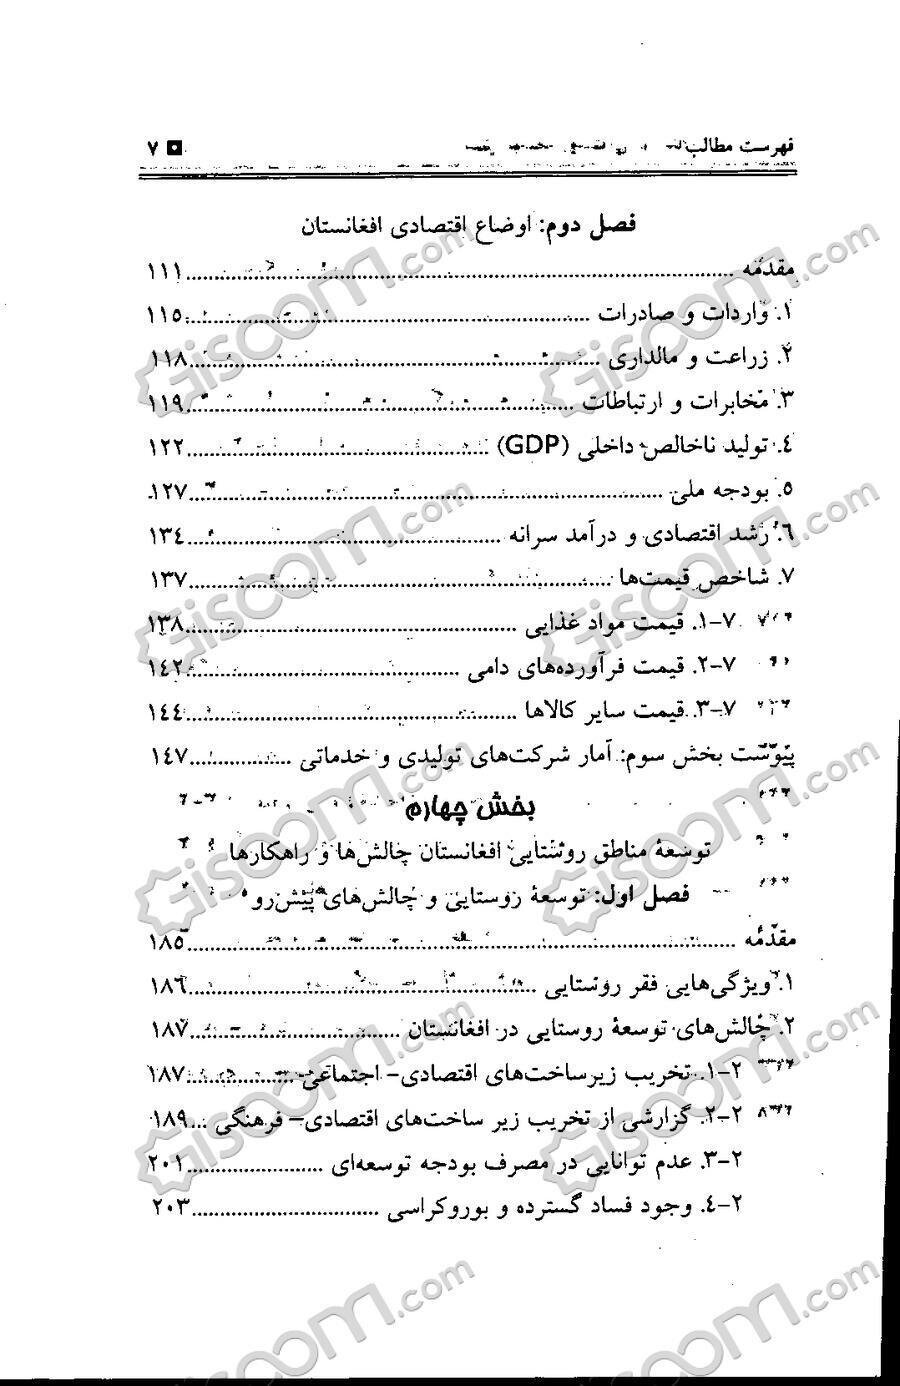 فهرست مطالب ٧
فصل دوم: اوضاع اقتصادی افغانستان
مقدمه ١١١
١. واردات و صادرات ١١٥
٢. زراعت و مالداری ١١٨
٣. مخابرات و ارتباطات ١١٩
٤. تولید ناخالص داخلی (GDP) ١٢٢
٥. بودجه ملی ١٢٧
٦. رشد اقتصادی و درآمد سرانه ١٣٤
٧. شاخص قیمت‌ها ١٣٧
٧-١. قیمت مواد غذایی ١٣٨
٧-٢. قیمت فرآورده‌های دامی ١٤٢
٧-٣. قیمت سایر کالاها ١٤٤
پیوست بخش سوم: آمار شرکت‌های تولیدی و خدماتی ١٤٧
بخش چهارم
توسعهٔ مناطق روستایی افغانستان چالش‌ها و راهکارها
فصل اول: توسعهٔ روستایی و چالش‌های پیش‌رو
مقدمه ١٨٥
١. ویژگی‌هایی فقر روستایی ١٨٦
٢. چالش‌های توسعهٔ روستایی در افغانستان ١٨٧
٢-١. تخریب زیرساخت‌های اقتصادی- اجتماعی ١٨٧
٢-٢. گزارشی از تخریب زیر ساخت‌های اقتصادی- فرهنگی ١٨٩
٢-٣. عدم توانایی در مصرف بودجه توسعه‌ای ٢٠١
٢-٤. وجود فساد گسترده و بوروکراسی ٢٠٣
Giscoom.com